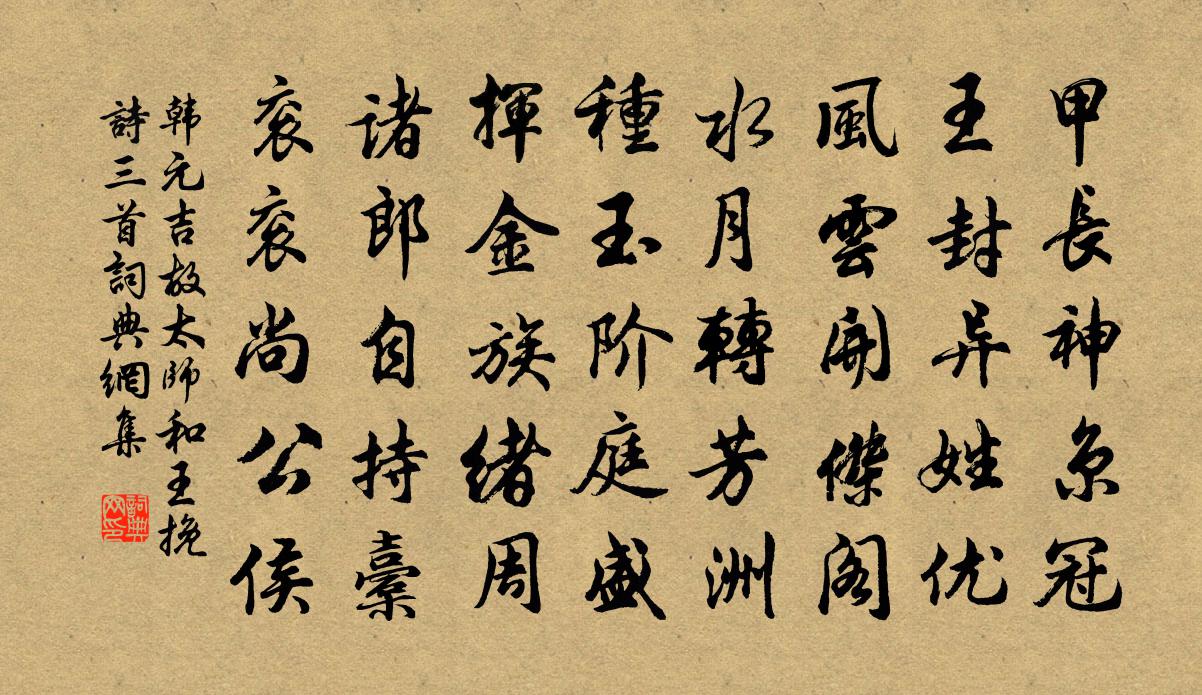 甲長神京冠
王封异姓优
風雲開傑閣
水月轉芳洲
種玉阶庭盛
揮金族緒周
诸郎自持橐
衮衮尚公侯
韩元吉故太師和王挽
詩三首詞典網集
詞典网印